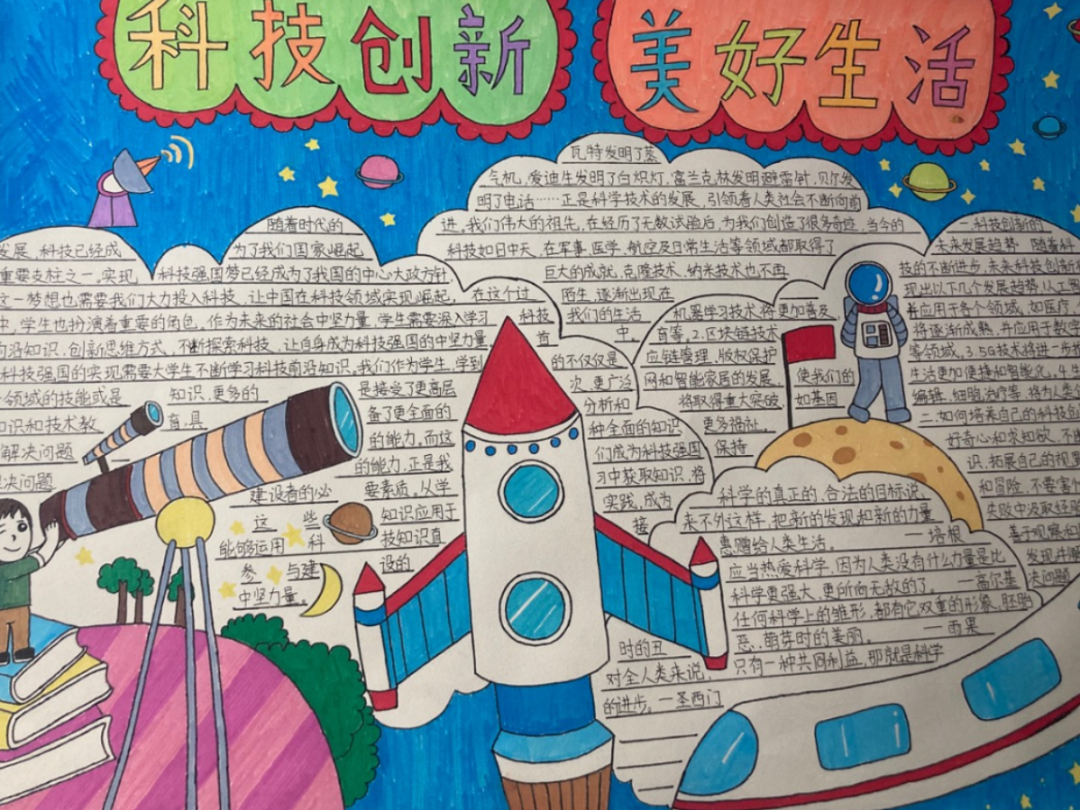 科技创新
美好生活
随着时代的
发展，科技已经成 为了我们国家崛起
重要支柱之一，实现 科技强国梦已经成为了我国的中心大政方针
这一梦想也需要我们大力投入科技，让中国在科技领域实现崛起，在这个过
中，学生也扮演着重要的角色。作为未来的社会中坚力量，学生需要深入学习 科技
前沿知识，创新思维方式，不断探索科技，让自身成为科技强国的中坚力量， 首
科技强国的实现需要大学生不断学习科技前沿知识，我们作为学生，学到 的不仅仅是
领域的技能或是 知识，更多的 是接受了更高层 次，更广泛
知识和技术教 育，具 备了更全面的 分析和
解决问题 的能力，而这 种全面的知识
解决问题 的能力，正是我 们成为科技强国
建设者的必 要素质。从学 习中获取知识，将
这些 知识应用于 实践，成为
能够运用科 技知识直 接
参与建 设的
中坚力量。
瓦特发明了蒸
气机，爱迪生发明了白炽灯，富兰克林发明避雷针，贝尔发
明了电话……正是科学技术的发展，引领着人类社会不断向前
进，我们伟大的祖先，在经历了无数试验后，为我们创造了很多奇迹，当今的
科技如日中天，在军事，医学，航空及日常生活等领域都取得了
巨大的成就，克隆技术，纳米技术也不再
陌生，逐渐出现在
我们的生活
中。
一.科技创新的
未来发展趋势 随着科
技的不断进步，未来科技创新
现出以下几个发展趋势，1.人工
机器学习技术，将更加普及 并应用于各个领域，如医疗
育等，2.区块链技术 将逐渐成熟，并应用于数字
应链管理，版权保护 等领域，3.5G技术将进一步
网和智能家居的发展， 使我们的 生活更加便捷和智能化，4.生
将取得重大突破 如基因 编辑，细胞治疗等，将为人类
更多福祉。 二.如何培养自己的科技创
保持 好奇心和求知欲，不断
识，拓展自己的视野
和冒险，不要害怕
失败中汲取经验
善于观察和
发现并
决问题
科学的真正的，合法的目标说
来不外这样，把新的发现和新的力量
惠赠给人类生活。 —培根
应当热爱科学，因为人类没有什么力量是比
科学更强大，更所向无敌的了。 —高尔基
任何科学上的雏形，都有它双重的形象，胚胎
时的丑恶，萌芽时的美丽。 —雨果
对全人类来说，只有一种共同利益，那就是科学
的进步。—圣西门